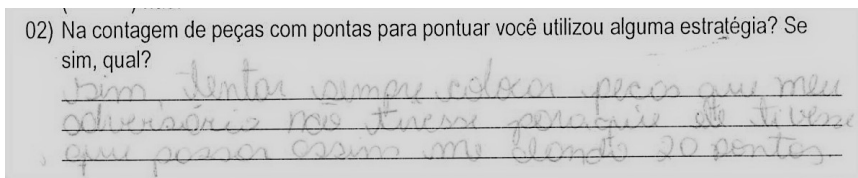 02) Na contagem de peças com pontas para pontuar você utilizou alguma estratégia? Se
sim, qual?
sim, tentar sempre colocar peças que meu
adversário não tivesse para que ele tivesse
que passar assim me dando 20 pontos